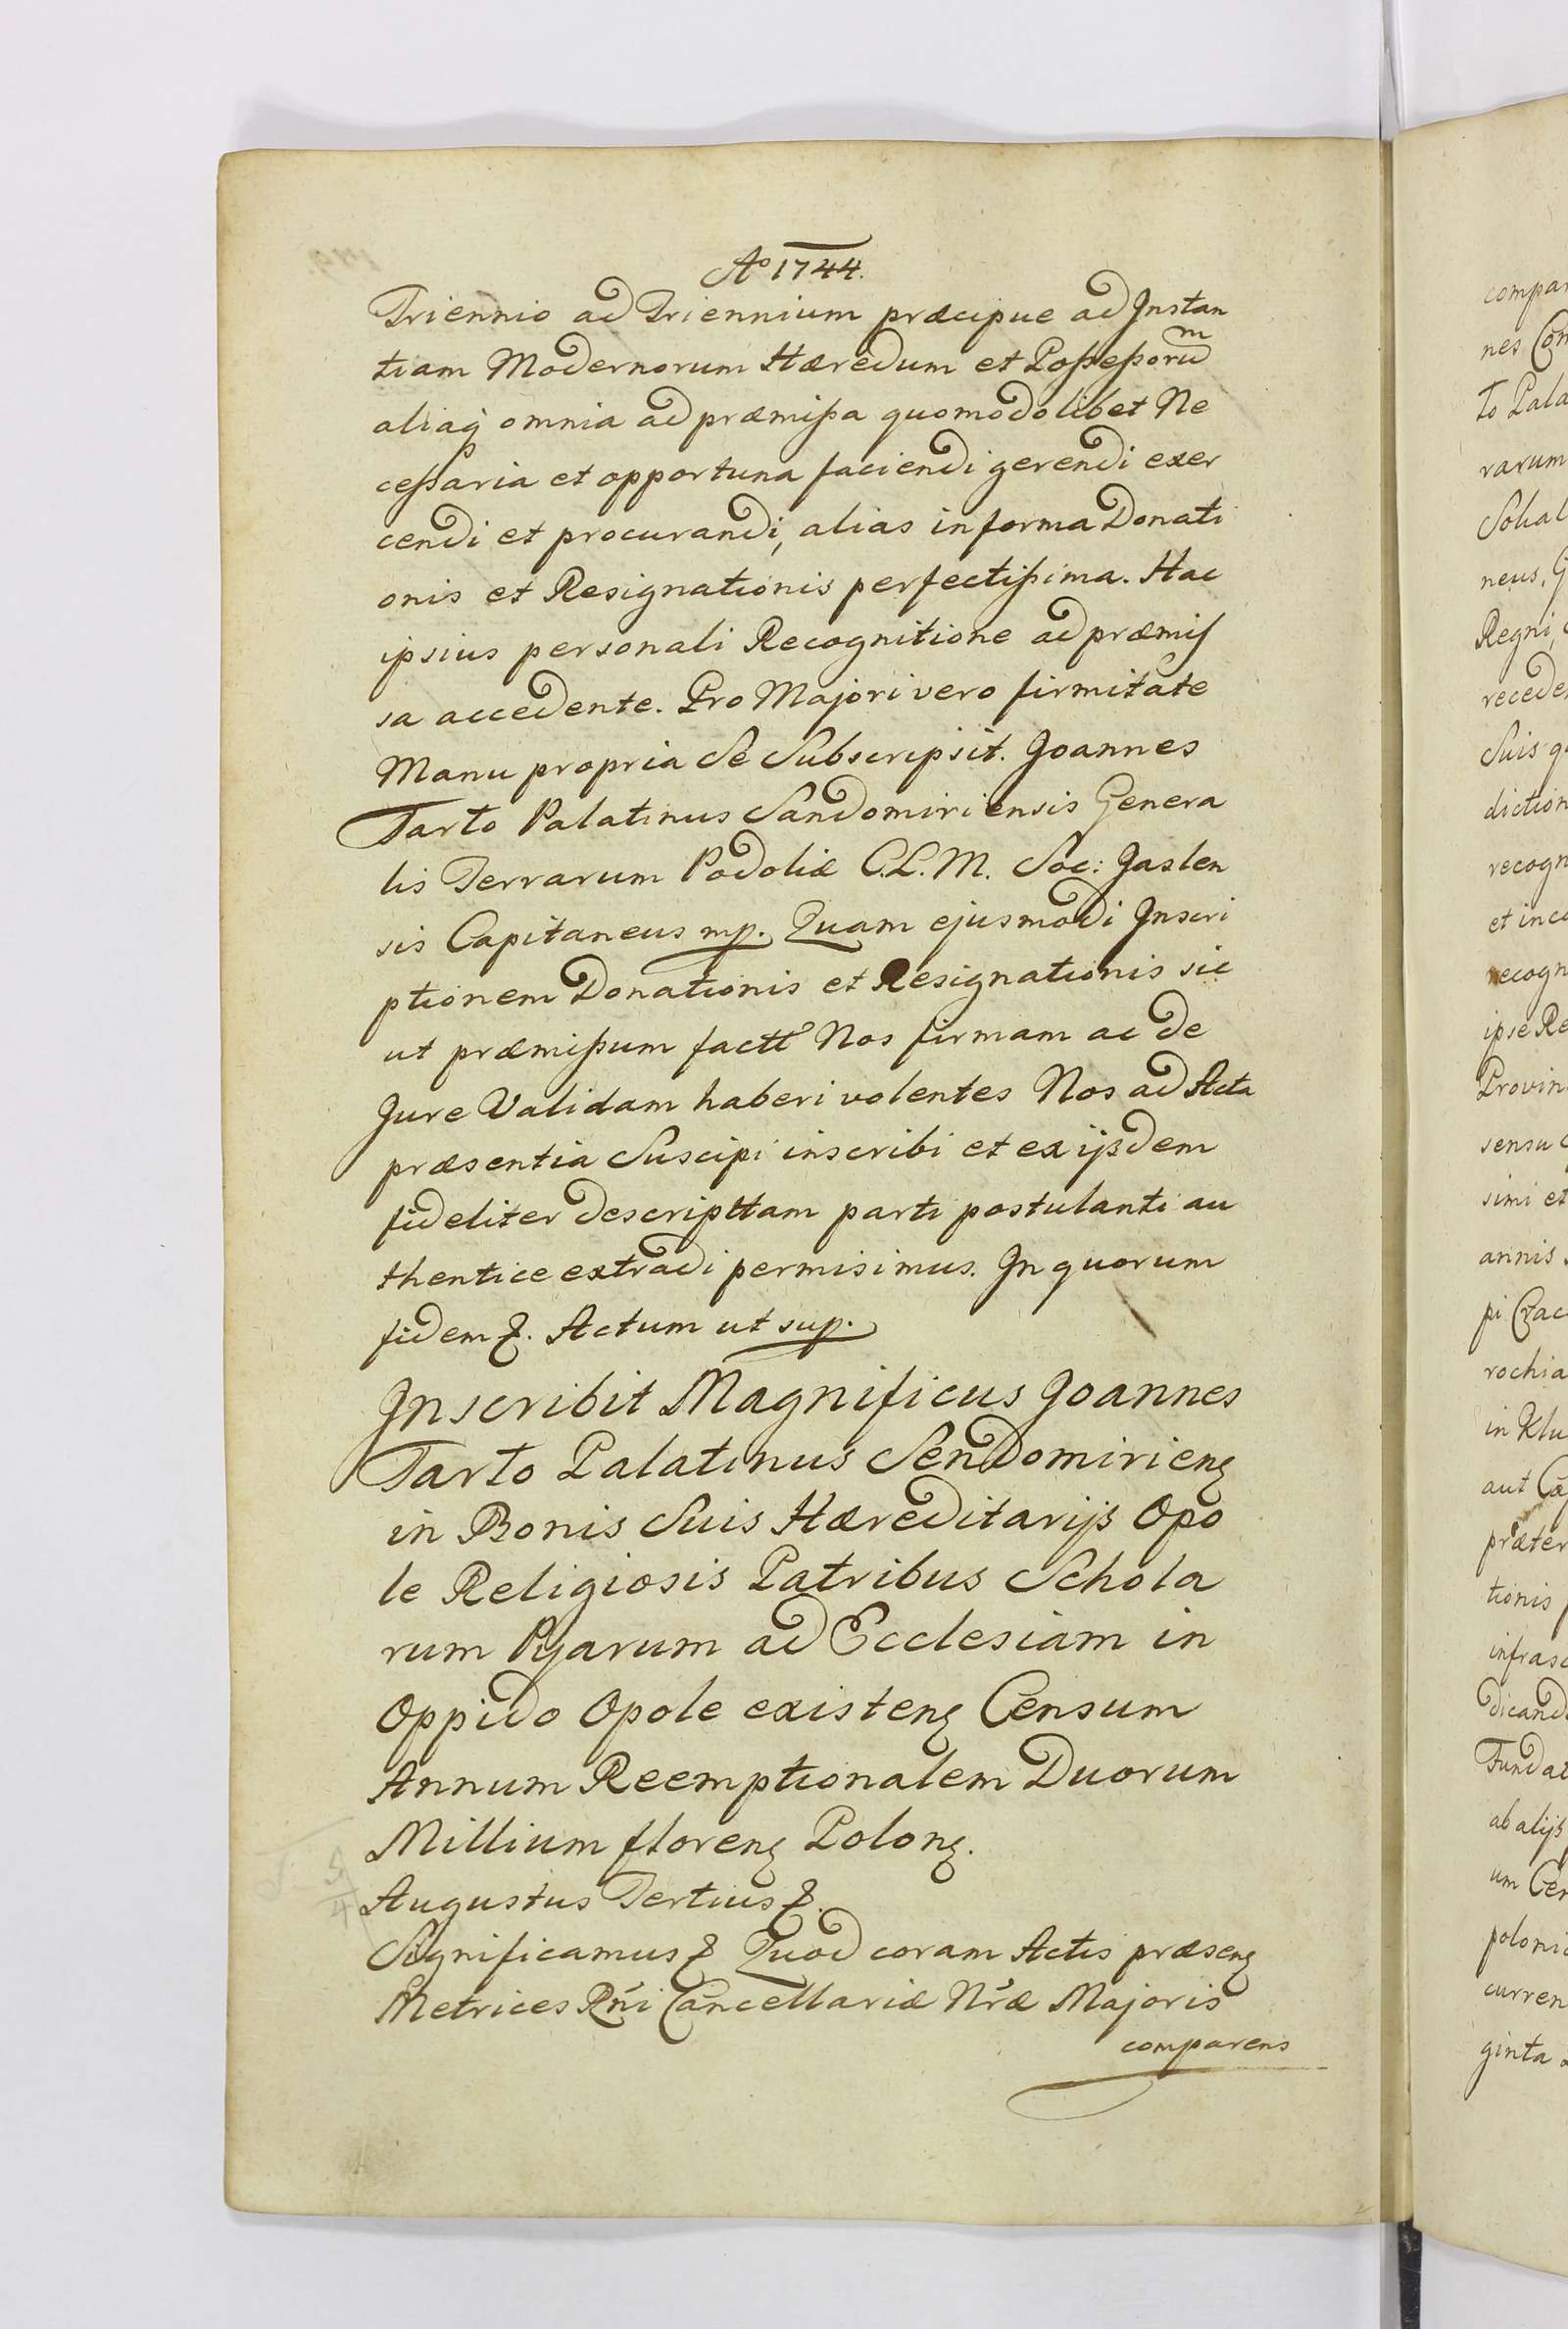 Aº 1744.
Triennio ad Triennium præcipue ad Jnstan
tiam Modernorum Hæredum et Poßeßorum
aliaq omnia ad præmißa quomodolibet Ne
ceßaria et opportuna faciendi gerendi exer
cendi et procurandi, alias in forma Donati
onis et Resignationis perfectißima. Hac
ipsius personali Recognitione ad præmis
sa accedente. Pro Majori vero firmitate
Manu propria Se Subscripsit. Joannes
Tarło Palatinus Sandomiriensis Genera
lis Terrarum Podoliæ C.L.M. Soc: Jaslen
sis Capitaneus mp. Quam ejusmodi Jnscri
ptionem Donationis et Resignationis sic
ut præmißum factt Nos firmam ac de
Jure Validam haberi volentes Nos ad Acta
præsentia Suscipi inscribi et ex ijsdem
fideliter descripttam parti postulanti au
thentice extradi permisimus. Jn quorum
fidem &. Actum ut sup.
Jnscribit Magnificus Joannes
Tarło Palatinus Sendomirieng
in Bonis Suis Hæreditarijs Opo
le Religiosis Patribus Schola
rum Pyarum ad Ecclesiam in
Oppido Opole existeng Censum
Annum Reemptionalem Duorum
Millium floreng Polong.
Augustus Tertius &.
Significamus & Quod coram Actis præseng
Metrices Rńi Cancellariæ Nŕæ Majoris
comparens
compar
nes Com
to Pala
rarum
Sokal
neus, G
Regni,
recede
Suis q
diction
recogn
et inco
recogn
ipse Re
Provin
sensu
simi et
annis
pi Czac
rochia
in Klu
aut Ca
præter
tionis
infrasc
dicand
Fundat
ab alijs
um Cen
poloni
curren
ginta